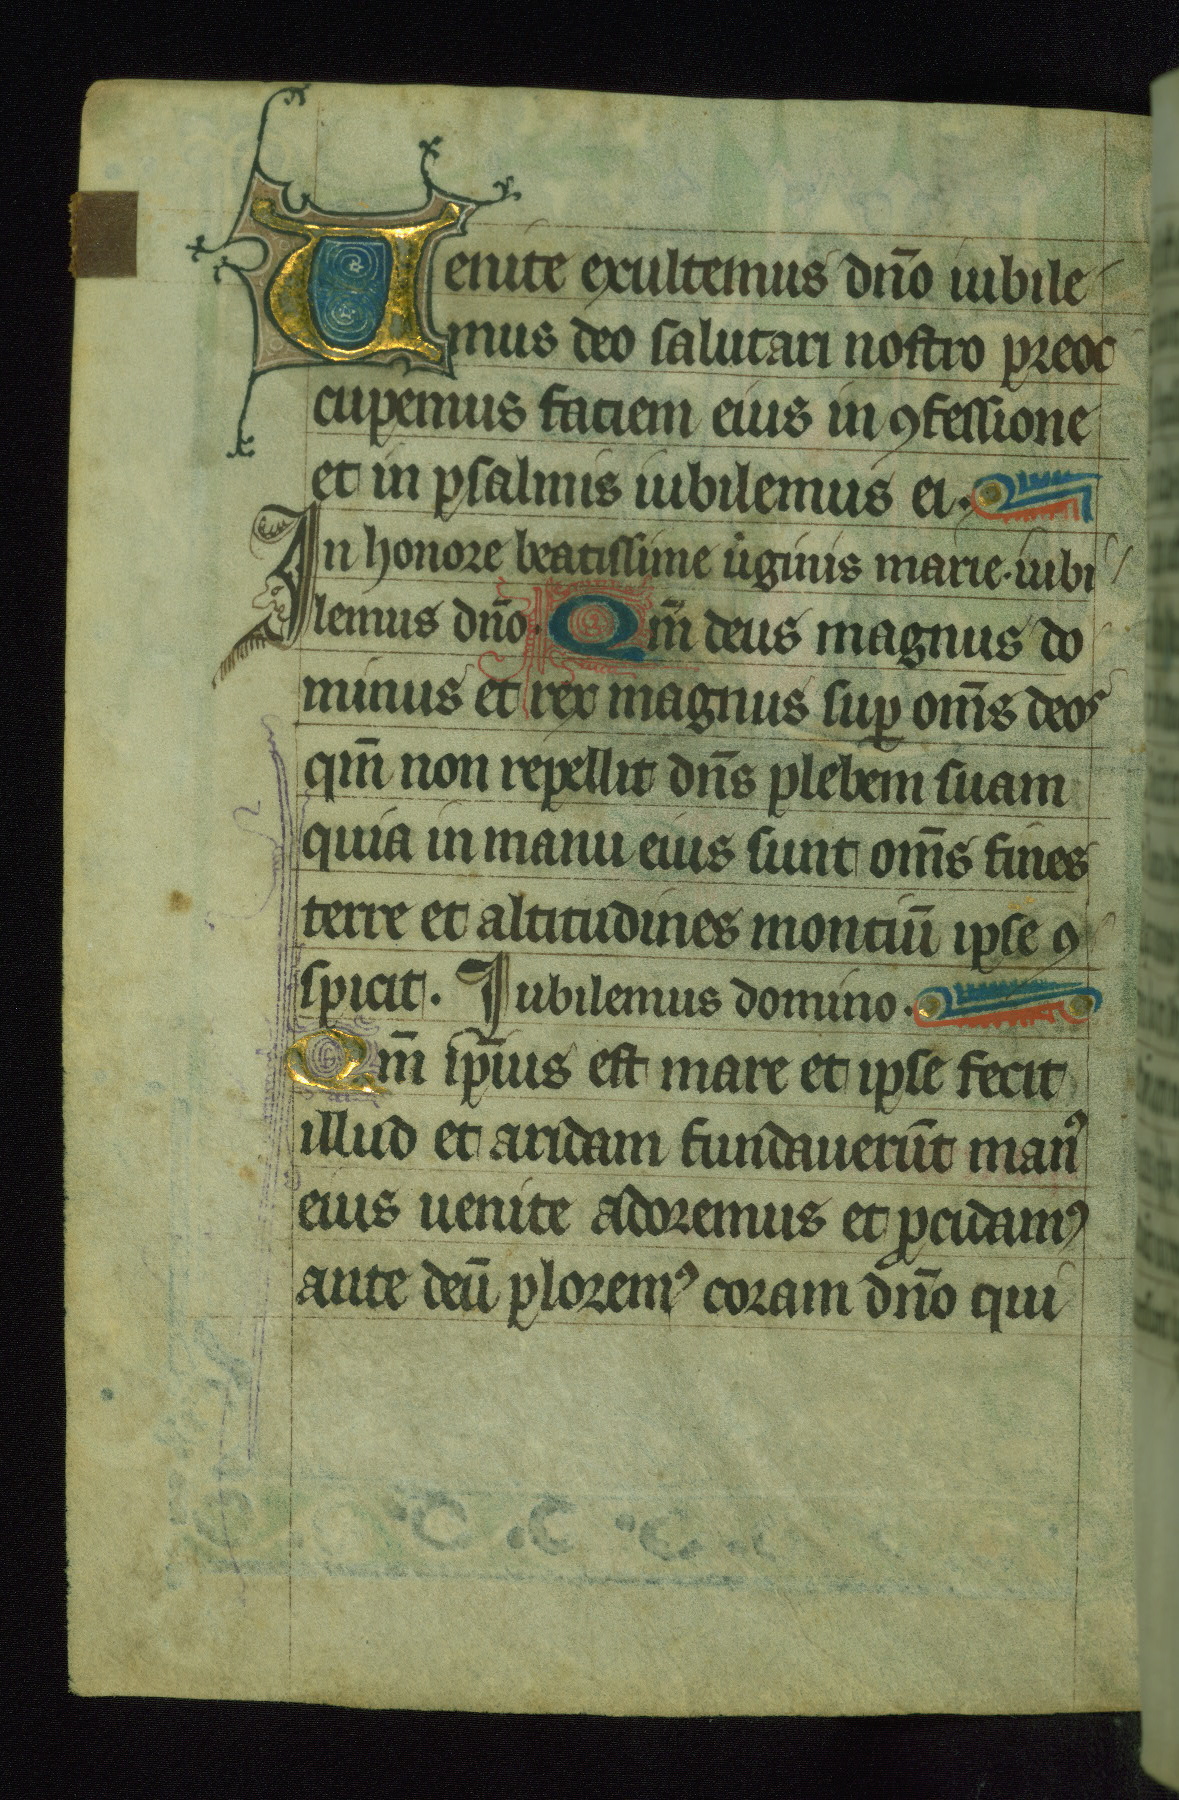 Uenite exultemus dn̄o iubile
mus deo salutari nostro preoc
cupemus faciem eius in ꝯfessione
et in psalmis iubilemus ei.
In honore beatissime uͥginis marie. iubi
lemus dn̄o. Qm̄ deus magnus do
minus et rex magnus suꝑ om̄s deos
qm̄ non repellit dn̄s plebem suam
quia in manu eius sunt om̄s fines
terre et altitudines montiū ipse ꝯ
spicit. Iubilemus domino.
Qm̄ ip̄ius est mare et ipse fecit
illud et aridam fundauerūt manꝰ
eius uenite adoremus et ꝓcidamꝰ
ante deū ploremꝰ coram dn̄o qui